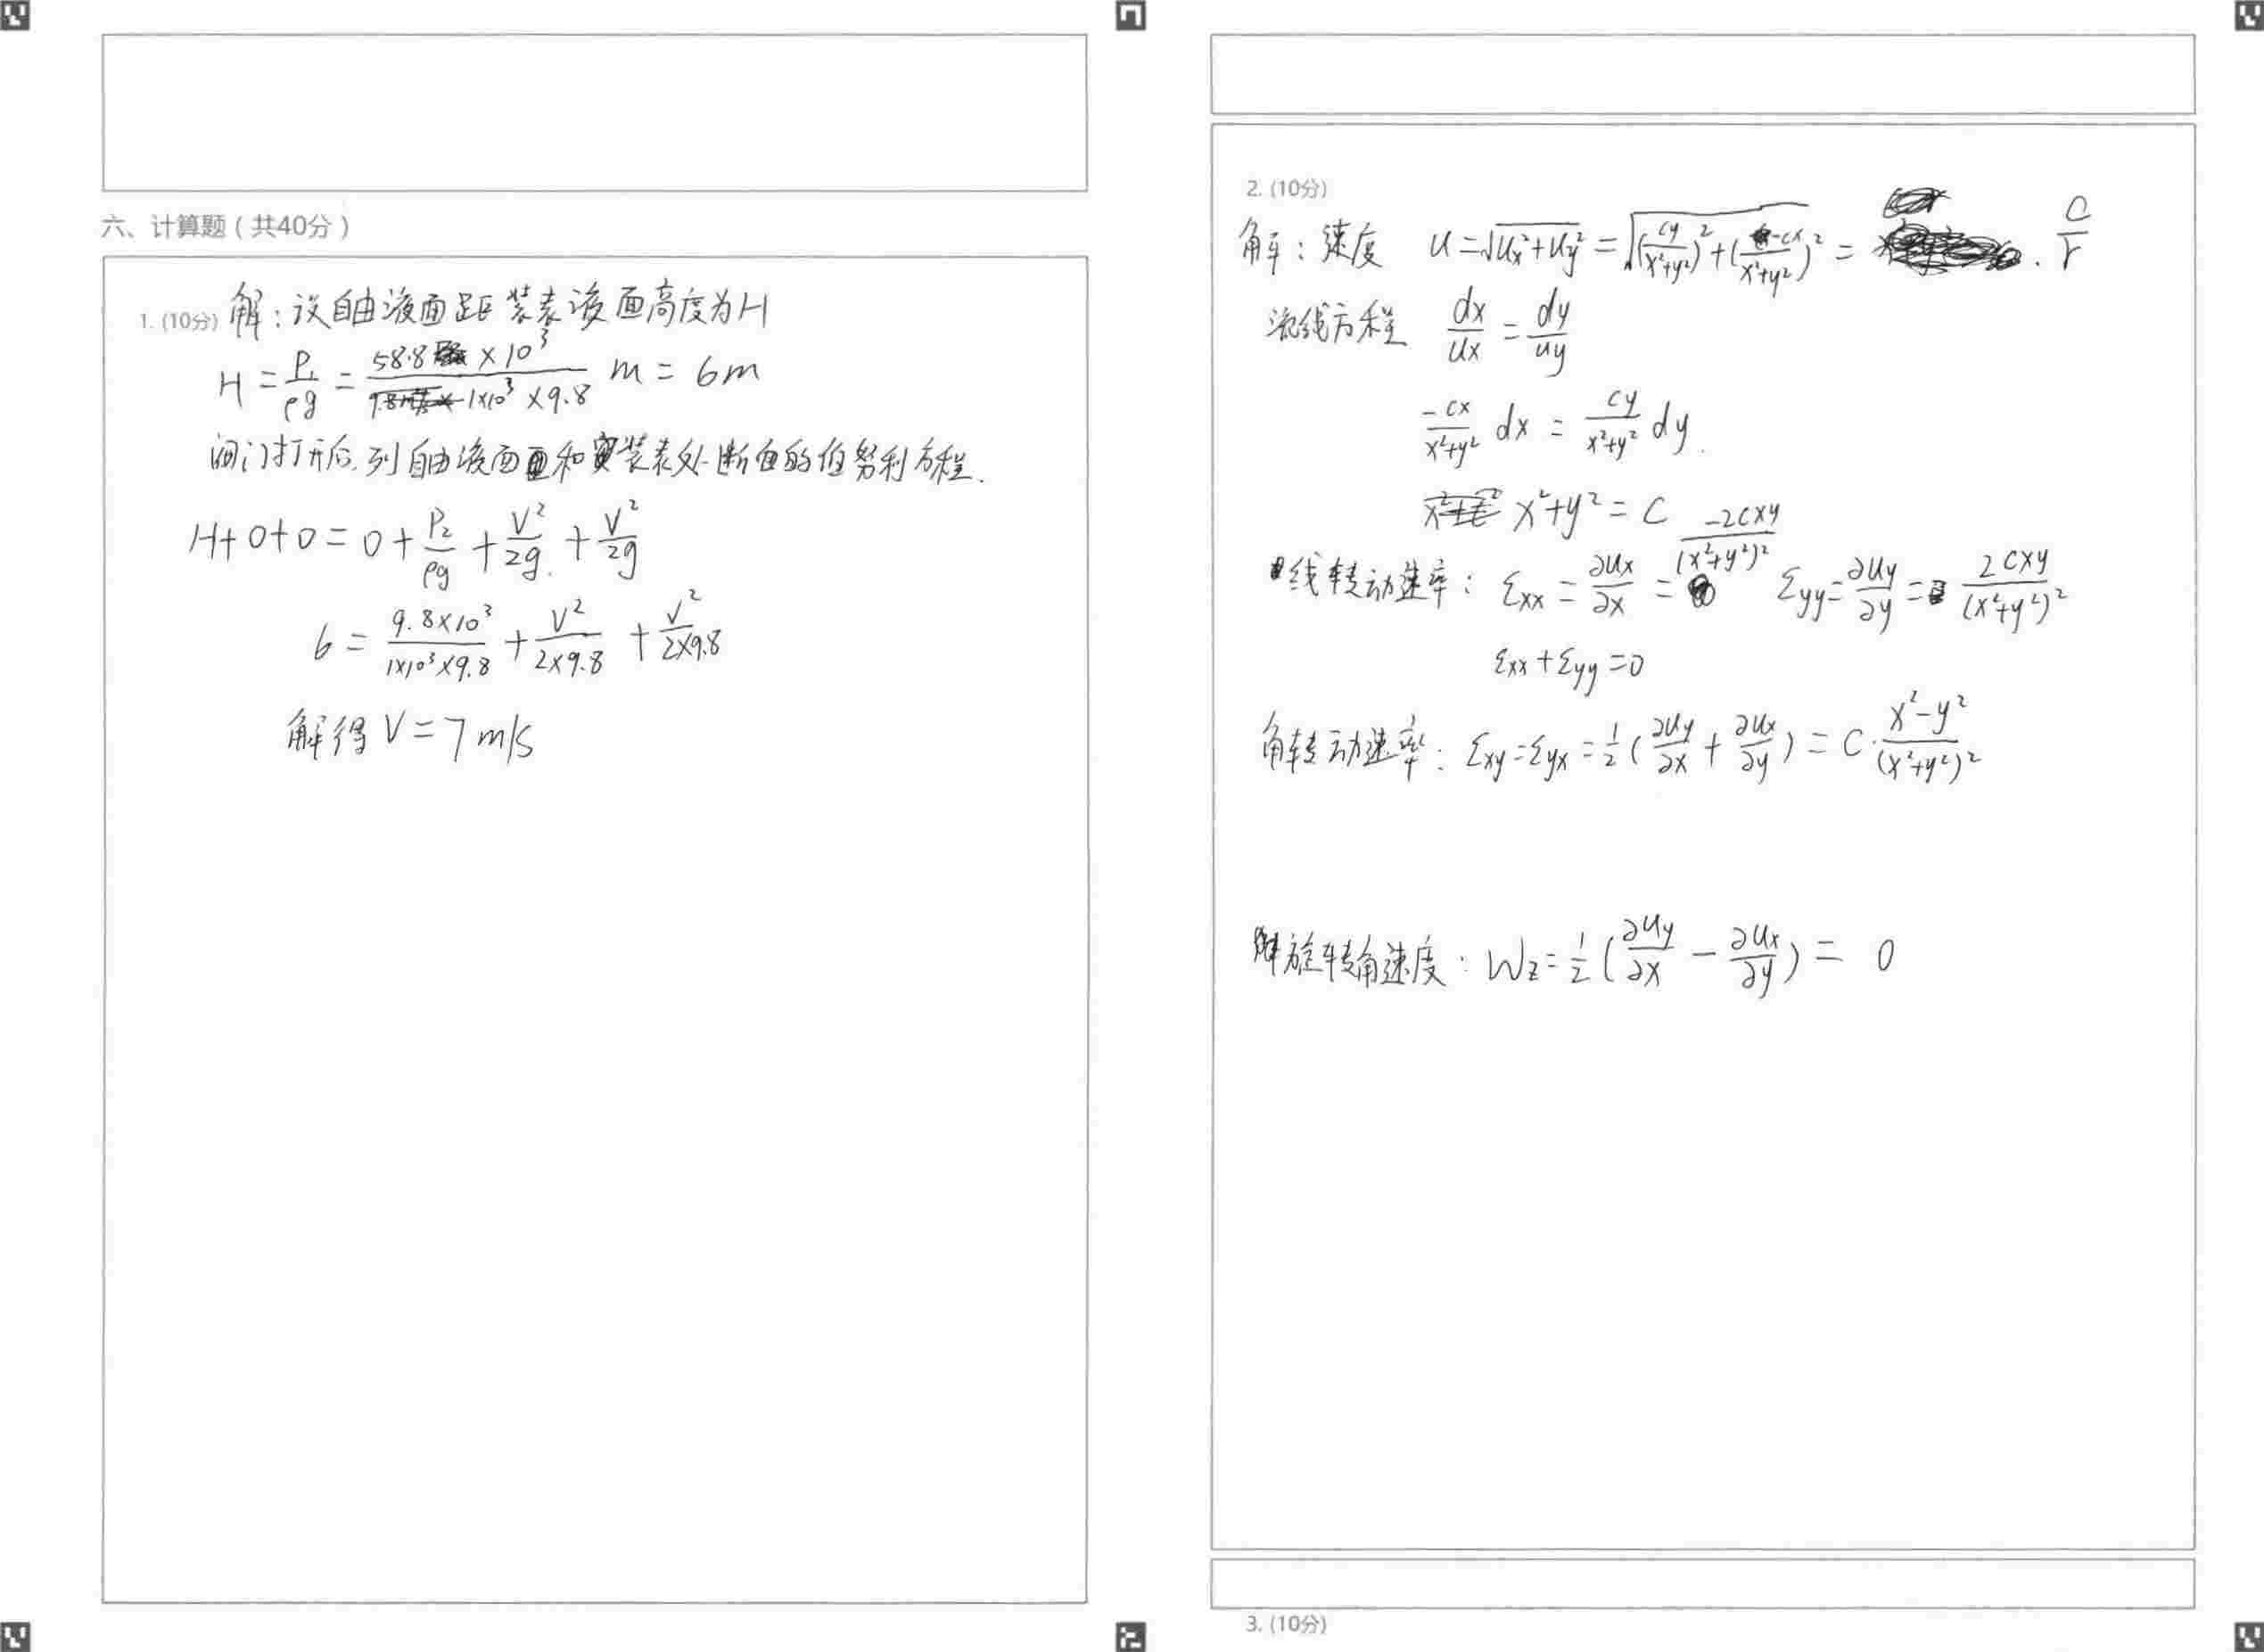 六、计算题（共40分）
1. (10分) 解：设自由液面距装表液面高度为H
H = P₁/ρg = 58.8×10³/1×10³×9.8 m = 6m
阀门打开后,列自由液面和安装表处断面的伯努利方程.
H+0+0 = 0 + P₂/ρg + V²/2g + V²/2g
6 = 9.8×10³/1×10³×9.8 + V²/2×9.8 + V²/2×9.8
解得 V = 7 m/s
2. (10分)
解：速度 u = √(ux²+uy²) = √((cy/x²+y²)²+(-cx/x²+y²)²) = c/r
流线方程 dx/ux = dy/uy
-cx/x²+y² dx = cy/x²+y² dy.
x²+y² = C
线转动速率：εxx = ∂ux/∂x = -2cxy/(x²+y²)² εyy = ∂uy/∂y = 2cxy/(x²+y²)²
εxx+εyy=0
角转动速率：εxy=εyx=1/2(∂uy/∂x + ∂ux/∂y) = C·x²-y²/(x²+y²)²
旋转角速度：Wz = 1/2(∂uy/∂x - ∂ux/∂y) = 0
3. (10分)